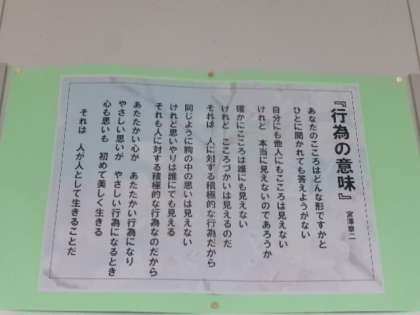 『行為の意味』
宮澤章二
あなたのこころはどんな形ですかと
ひとに聞かれても答えようがない
自分にも他人にもこころは見えない
けれど 本当に見えないのであろうか
確かにこころは誰にも見えない
けれど こころづかいは見えるのだ
それは 人に対する積極的な行為だから
同じように胸の中の思いは見えない
けれど思いやりは誰にでも見える
それも人に対する積極的な行為なのだから
あたたかい心が あたたかい行為になり
やさしい思いが やさしい行為になるとき
心も思いも 初めて美しく生きる
それは 人が人として生きることだ